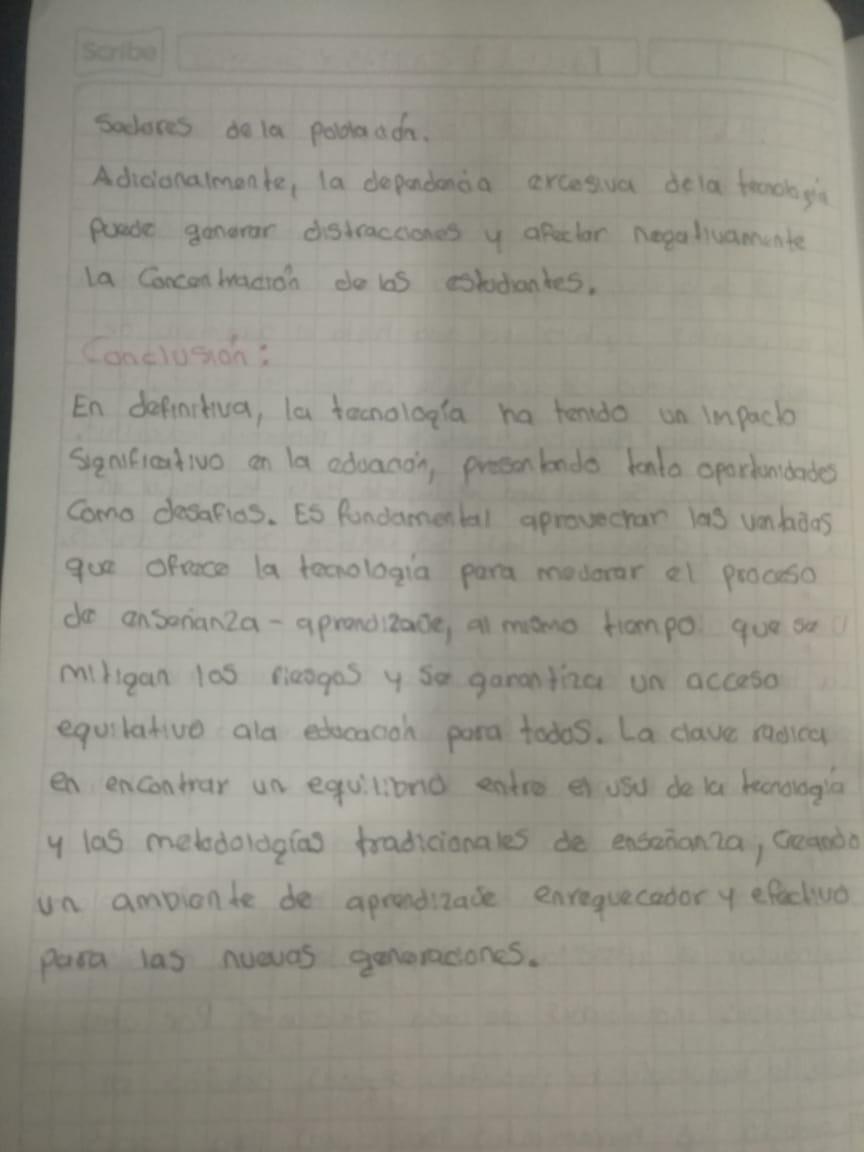 Scribe
Sectores de la población.
Adicionalmente, la dependencia excesiva dela tecnología
puede generar distracciones y afectar negativamente
la Concentración de los estudiantes.
Conclusión:
En definitiva, la tecnología ha tenido un impacto
significativo en la educación, presentando tanto oportunidades
Como desafíos. Es fundamental aprovechar las ventajas
que ofrece la tecnología para mejorar el proceso
de enseñanza - aprendizaje, al mismo tiempo que se
mitigan los riesgos y se garantiza un acceso
equitativo ala educación para todos. La clave radica
en encontrar un equilibrio entre el uso de la tecnología
y las metodologías tradicionales de enseñanza, Creando
un ambiente de aprendizaje enrequecedor y efectivo
para las nuevas generaciones.